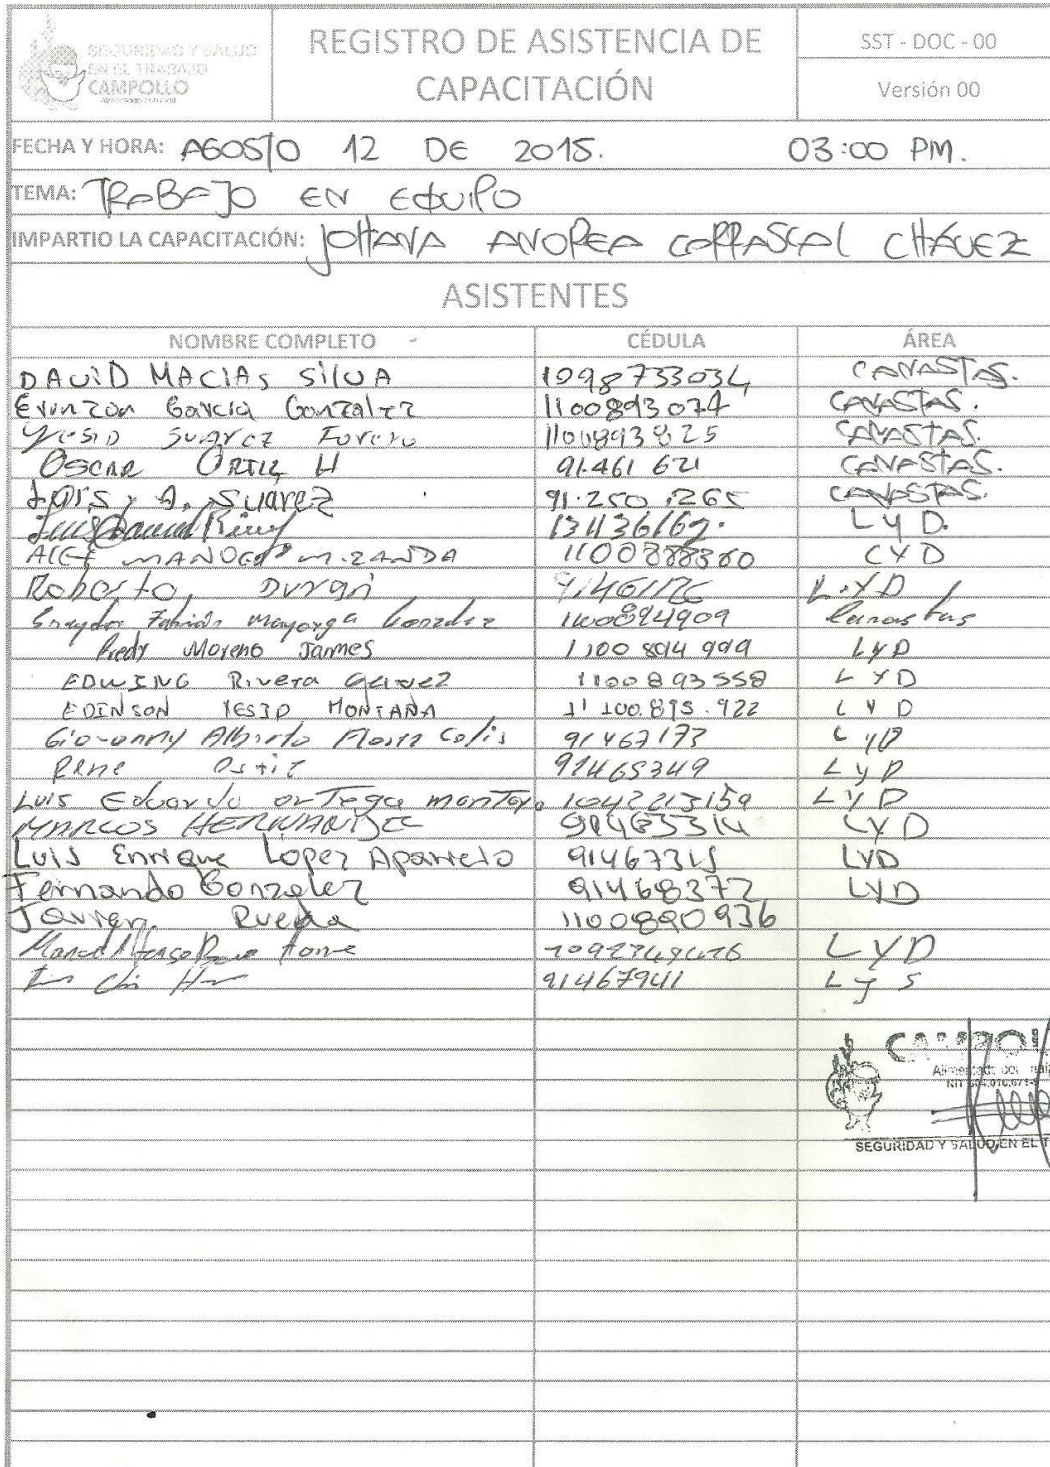 SEGURIDAD Y SALUD
EN EL TRABAJO
CAMPOLLO
REGISTRO DE ASISTENCIA DE
CAPACITACIÓN
SST - DOC - 00
Versión 00
FECHA Y HORA: AGOSTO 12 DE 2015. 03:00 PM.
TEMA: TRABAJO EN EQUIPO
IMPARTIO LA CAPACITACIÓN: JOHANA ANDREA CARRASCAL CHÁVEZ
ASISTENTES
NOMBRE COMPLETO CÉDULA ÁREA
DAVID MACIAS SILVA 1098733034 CANASTAS.
García González 1100893074 CANASTAS.
Yesid Suarez Forero 1100893825 CANASTAS.
OSCAR ORTIZ H 91.461 621 CANASTAS.
A. SUAREZ 91.250.265 CANASTAS.
Luis 13436162. L Y D.
MANDON MIRANDA 1100888360 L Y D
Roberto Duran L Y D
Fabián Mayorga González 1100894909 Canastas
Fredy Moreno Jaimes 1100 894 999 L Y D
EDWING Rivera 1100893558 L Y D
EDINSON YESID MONTAÑA 1'100.895.922 L Y D
Giovanny Alberto 91467173 L y D
Rene Ortiz 91465349 L y D
Luis Eduardo ortega montoya 1042213159 L Y D
MARCOS HERNANDEZ 91463314 L Y D
Luis Enrique Lopez Aparicio 91467315 LYD
Fernando Gonzalez 91468372 LYD
Javier Rueda 1100890936
Manuel Alfonso L Y D
91467941 L y S
CAMPOLL
Alimentado con
NIT
SEGURIDAD Y SALUD EN EL T